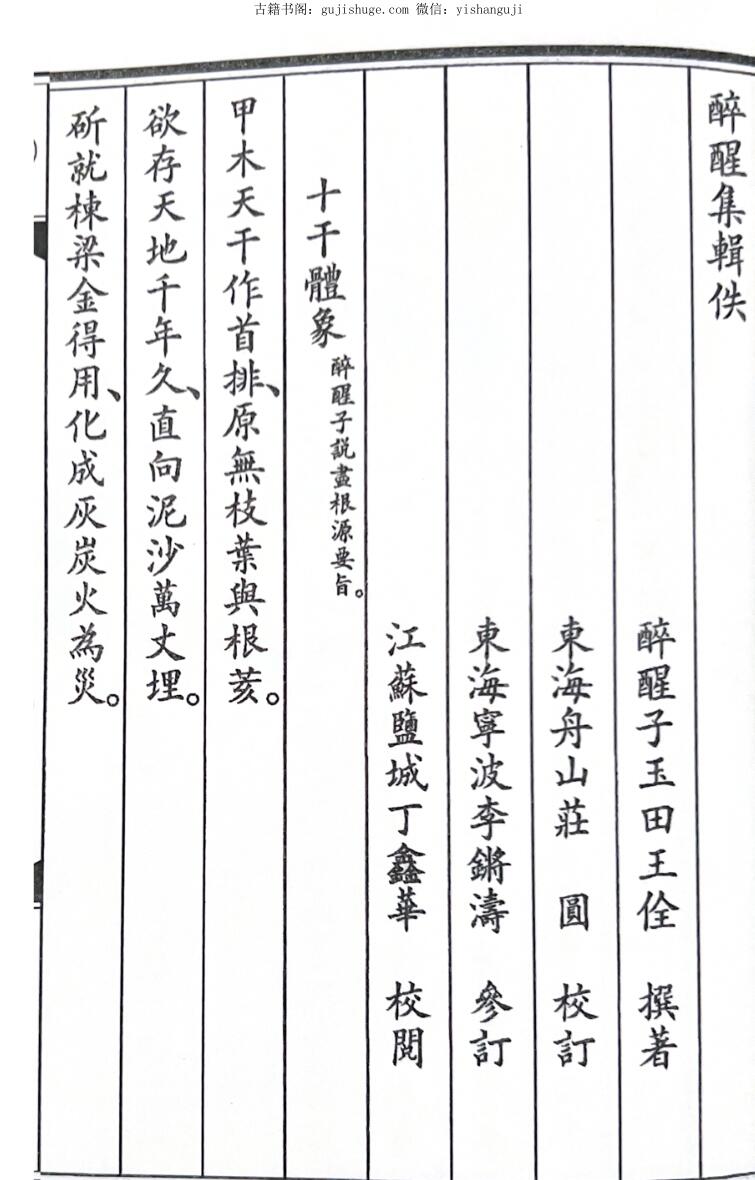 古籍书阁：gujishuge.com 微信：yishanguji
醉醒集輯佚
醉醒子玉田王佺 撰著
東海舟山莊 圓 校訂
東海寧波李鏘濤 參訂
江蘇鹽城丁鑫華 校閱
十干體象 醉醒子説盡根源要旨。
甲木天干作首排、原無枝葉與根荄。
欲存天地千年久、直向泥沙萬丈埋。
斫就棟梁金得用、化成灰炭火為災。